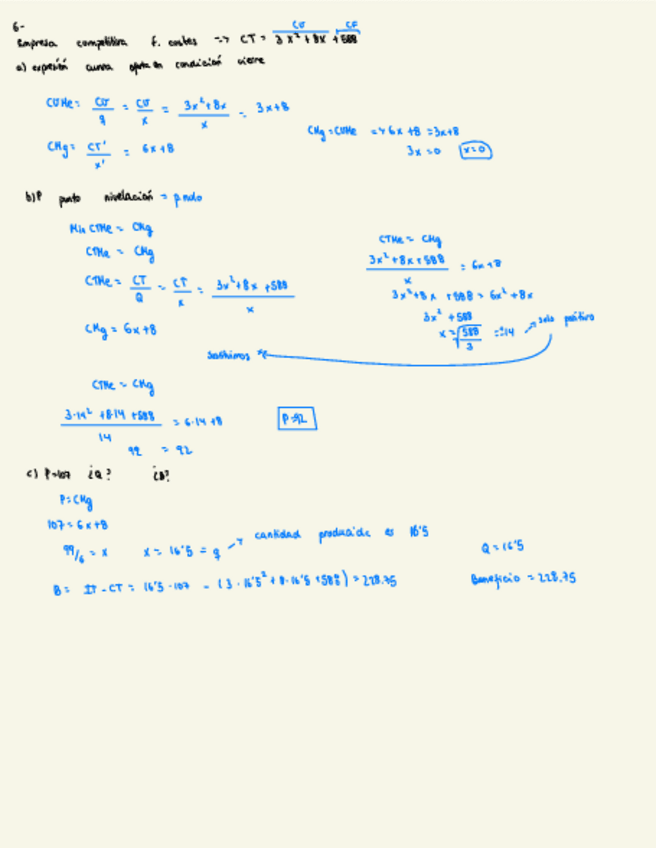 6-
Empresa competitiva f. costes => CT = 3x² + 8x + 588
CV CF
a) expresión curva oferta en condición cierre
CVMe = CV/q = CV/x = (3x²+8x)/x = 3x+8
CMg = CT'/x' = 6x+8
CMg = CVMe => 6x+8 = 3x+8
3x=0 x=0
b) P punto nivelación = p nulo
Min CTMe = CMg
CTMe = CMg
CTMe = CT/Q = CT/x = (3x²+8x+588)/x
CMg = 6x+8
CTMe = CMg
(3x²+8x+588)/x = 6x+8
3x²+8x+588 = 6x²+8x
3x² + 588
x = √(588/3) = ±14 → solo positivo
Sustituimos
CTMe = CMg
(3·14² + 8·14 + 588)/14 = 6·14+8
92 = 92
P=92
c) P=107 ¿Q? ¿B?
P=CMg
107 = 6x+8
99/6 = x x = 16'5 = q → cantidad producida es 16'5
Q = 16'5
B = IT - CT = 16'5·107 - (3·16'5² + 8·16'5 + 588) = 228.75
Beneficio = 228.75